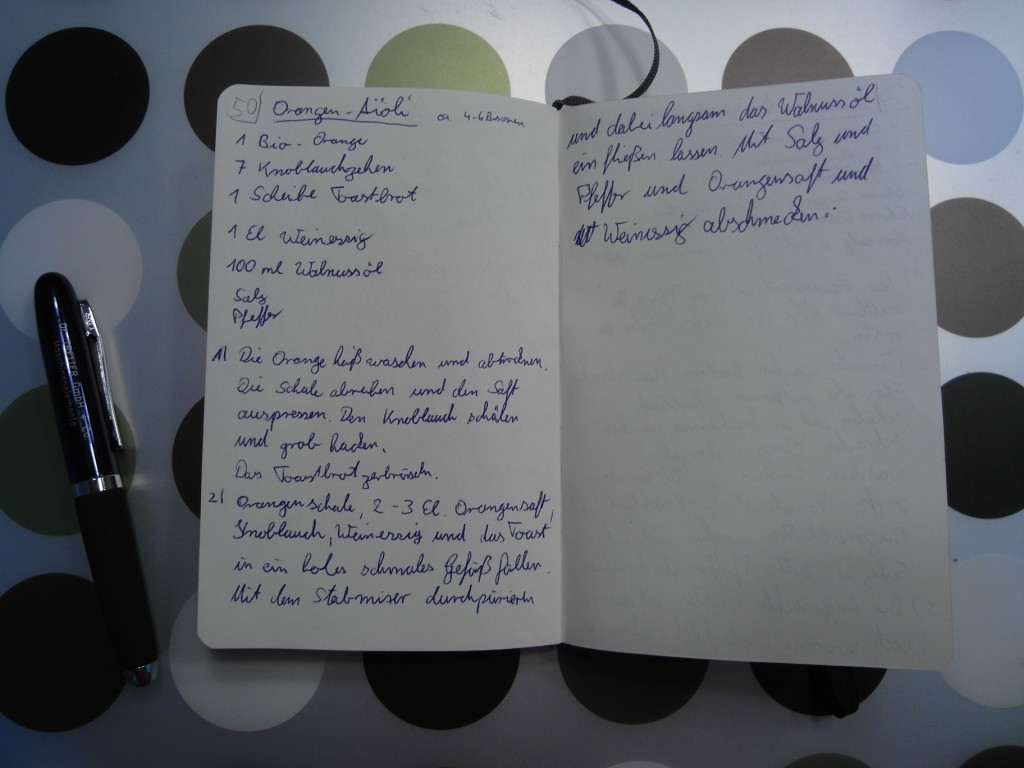 50) Orangen-Aïoli ca 4-6 Personen
1 Bio-Orange
7 Knoblauchzehen
1 Scheibe Toastbrot
1 El Weinessig
100 ml Walnussöl
Salz
Pfeffer
1) Die Orange heiß waschen und abtrocknen.
Die Schale abreiben und den Saft
auspressen. Den Knoblauch schälen
und grob hacken.
Das Toastbrot zerbröseln.
2) Orangenschale, 2-3 El. Orangensaft,
Knoblauch, Weinessig und das Toast
in ein hohes schmales Gefäß füllen.
Mit dem Stabmixer durchpürieren
und dabei langsam das Walnussöl
einfließen lassen. Mit Salz und
Pfeffer und Orangensaft und
Weinessig abschmecken.